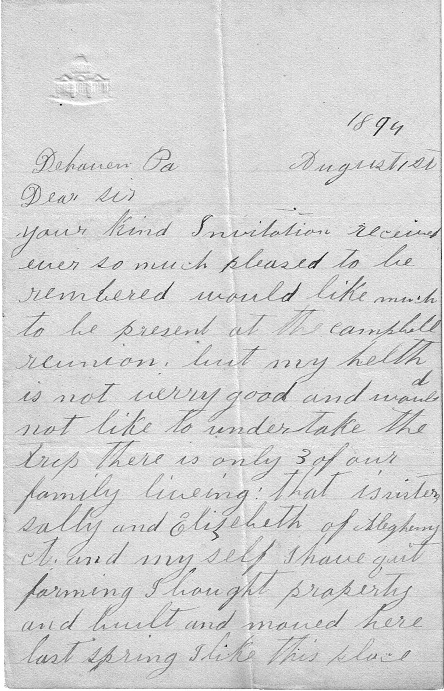 1894
Dehaven Pa August 1st
Dear sir
your kind Invitation received
ever so much pleased to be
rembered would like much
to be present at the campbell
reunion. but my helth
is not verry good and would
not like to undertake the
trip there is only 3 of our
family liveing: that is sister
sally and Elizebeth of Alegheny
ct. and my self I have quit
farming I bought property
and built and moved here
last spring I like this place